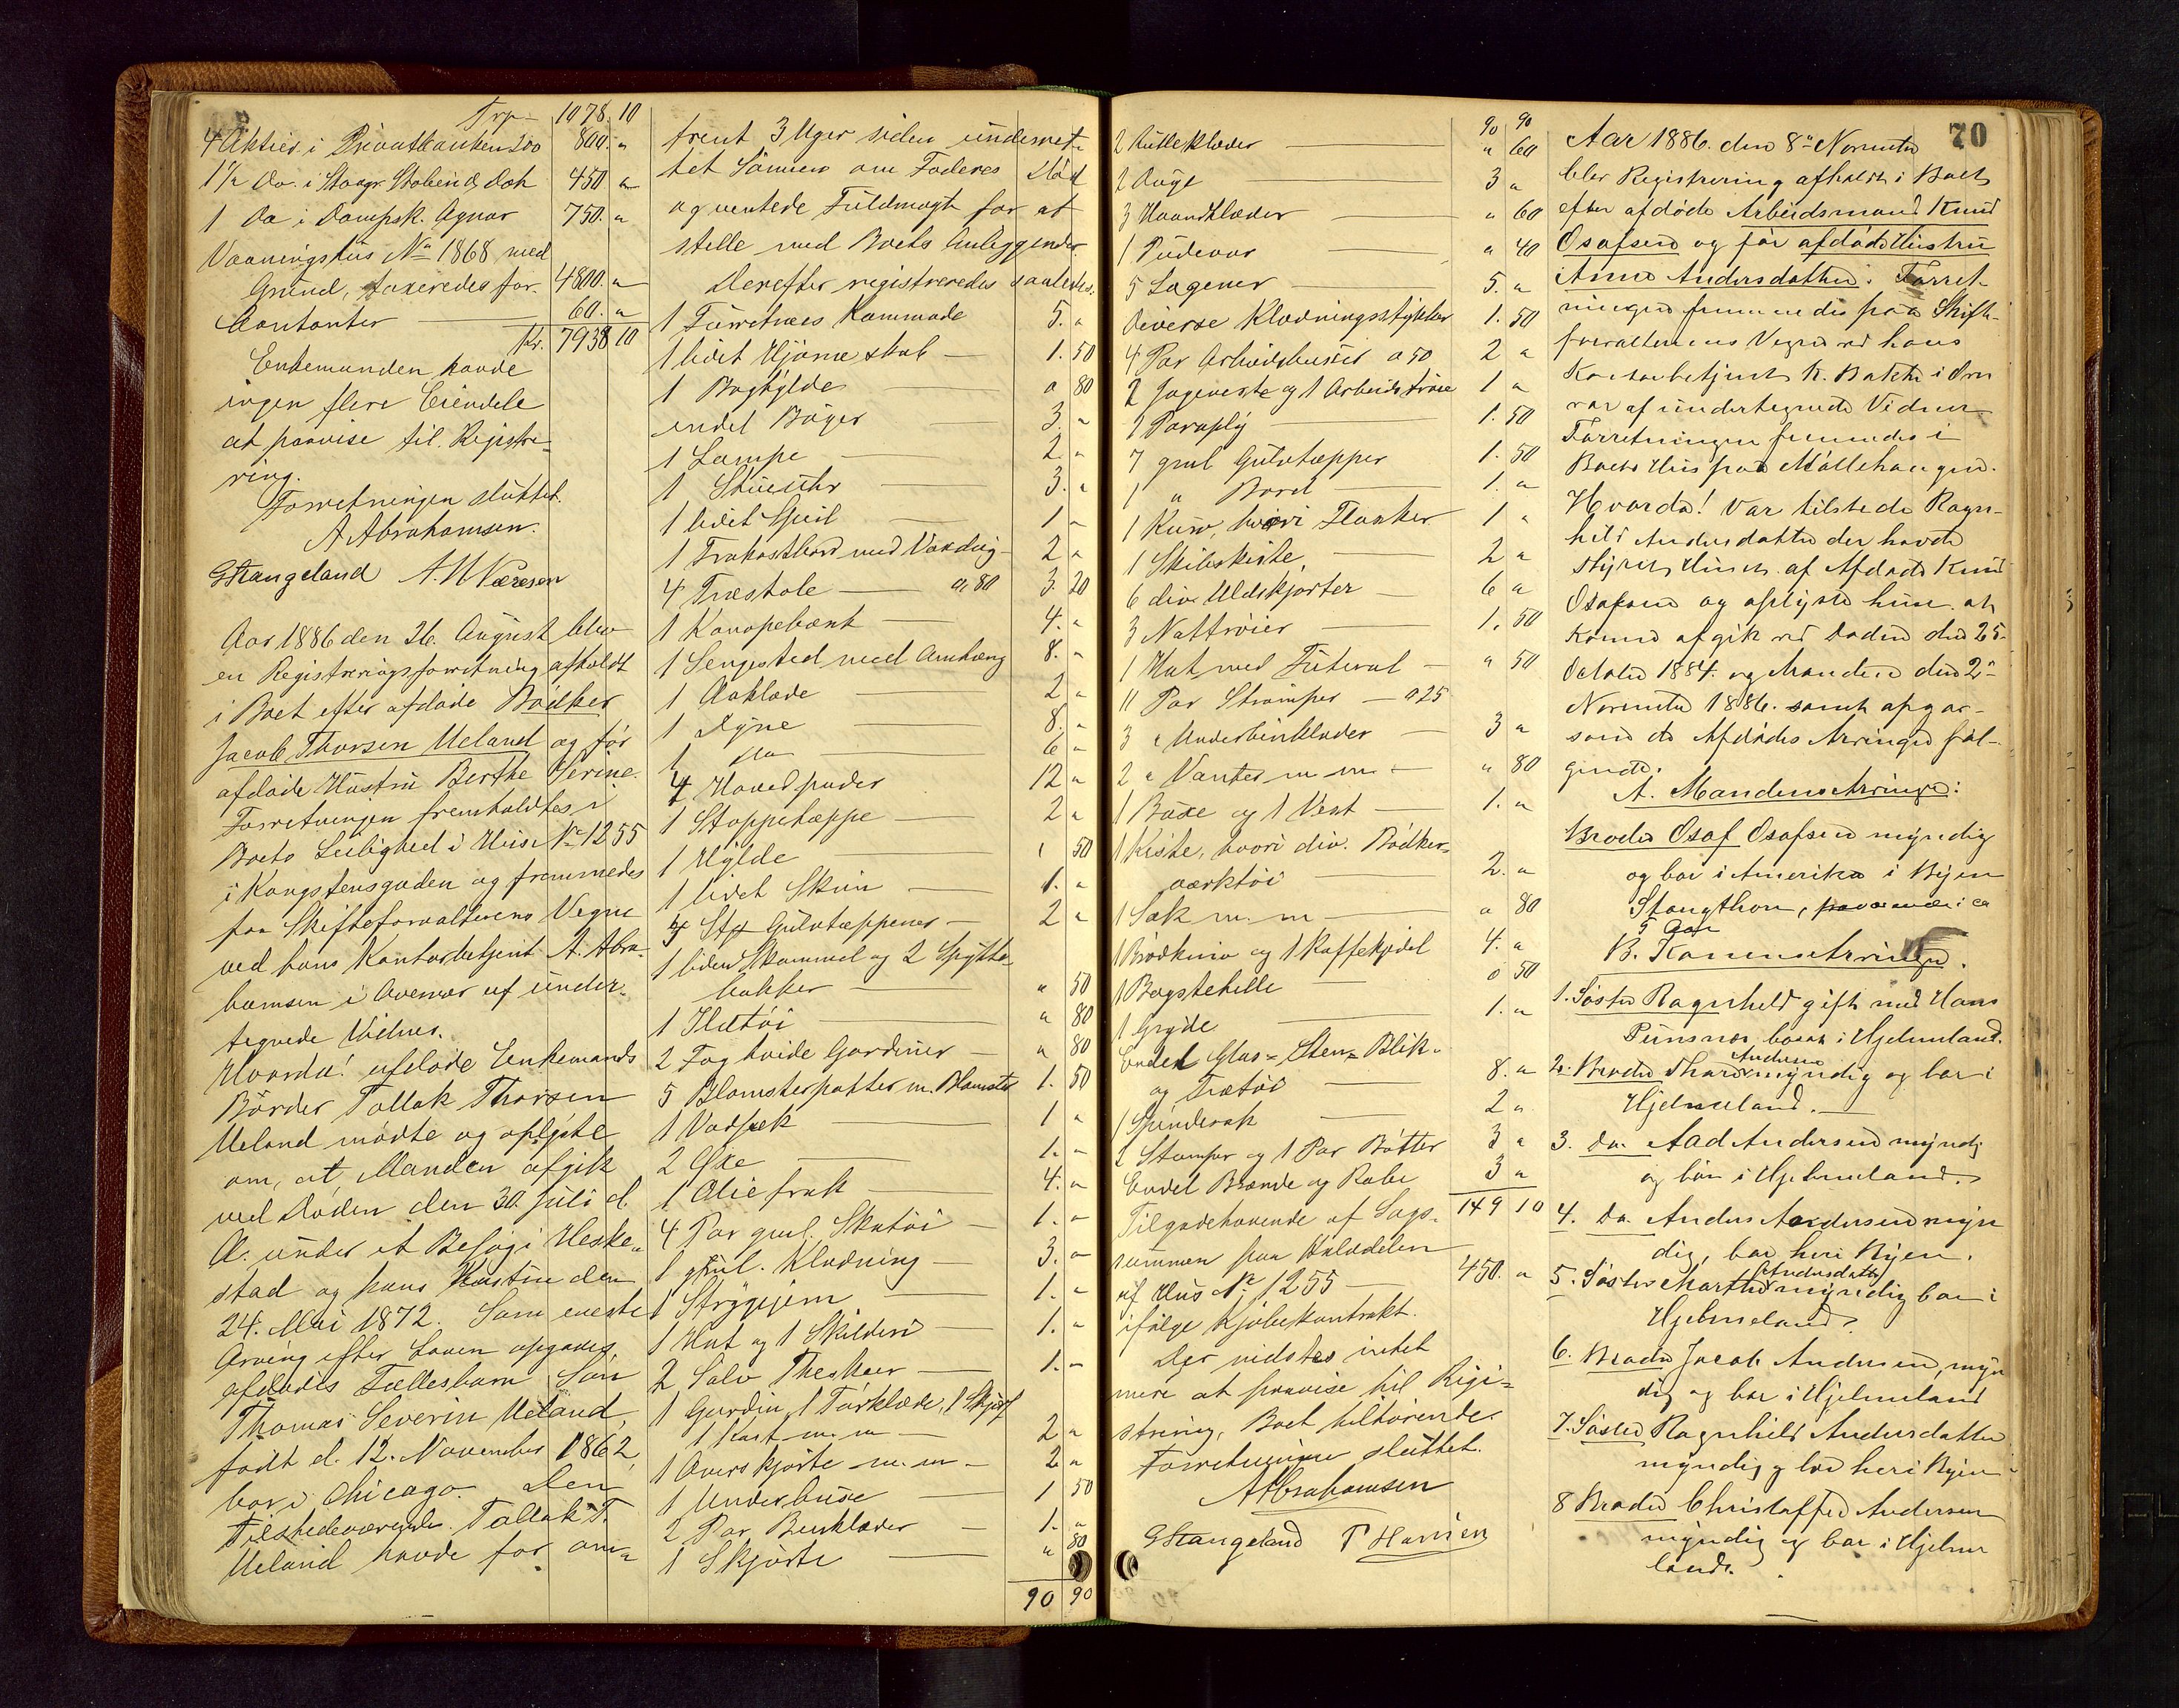 Trp 1078.10
4 Aktier i Privatbanken 200 800. "
1½ Do. i Stavgr. Støberi & Dok 450 "
1 Do i Dampsk. Agnar 750. "
Vaaningshus No 1868 med
Grund, taxeredes for 4800. "
Contanter 60. "
Kr. 7938 10
Enkemanden havde
ingen flere Eiendele
at paavise til Registre-
ring.
Forretningen sluttet.
A Abrahamsen.
G Stangeland A. H Næresen
Aar 1886 den 26. August blev
en Registreringsforretning afholdt
i Boet efter afdøde Bødker
Jacob Thorsen Ueland og før
afdøde Hustru Berthe Serine.
Forretningen fremholdtes i
Boets Leilighed i Huus No 1255
i Kongstensgaden og fremmedes
paa Skifteforvalterens Vegne
ved hans Kontorbetjent A. Abra-
hamsen i Overvær af under-
tegnede Vidner.
Hvorda! afdøde Enkemands
Bôrder Tollak Thorsen
Ueland mødte og oplyste
om, at Manden afgik
ved Døden den 30. Juli d.
A. under et Besøg i Heske-
stad og hans Hustru den
24. Mai 1872. Som eneste
Arving efter Loven opgaves
afdødes Fællesbarn Søn
Thomas Severin Ueland,
født d. 12. November 1862,
bor i Chicago. Den
Tilstedeværende Tollak T.
Ueland havde for om-
trent 3 Uger siden underret-
tet Sønnen om Faderes Død
og ventede Fuldmagt for at
stelle med Boets Anliggender.
Derefter registreredes saaledes:
1 Furretræes Kommode 5. "
1 lidet Hjørneskab 1. 50
1 Boghylde " 80
endel Bøger 3. "
1 Lampe 2. "
1 Stueuhr 3. "
1 lidet Speil 1 "
1 Frokostbord med Voxdug 2 "
4 Træstole a 80 3. 20
1 Kanapebænk 4. "
1 Sengested med Omhæng 8. "
1 Aaklæde 2 "
1 Dyne 8. "
1 Do 6 "
4 Hovedpuder 12 "
1 Stoppetæppe 2 "
1 Hylde " 50
1 lidet Skrin 1. "
3 Stk Gulvtæppener 2 "
1 liden Skammel og 2 Spytte-
bakker " 50
1 Ildtøi " 80
2 Fag hvide Gardiner " 80
5 Blomsterpotter m. Blomster 1. 50
1 Vadsæk 1 "
2 Øxe 1. "
1 Oliefrak 4. "
4 Par gml. Skotøi 1. "
1 gml. Klædning 3. "
1 Strygejern 1. "
1 Hat og 1 Skilderi 1. "
2 Sølv Theskeer 1. "
1 Gardin, 1 Tørklæde, 1 Skjørt
1 Kart m. m 2 "
1 Overskjorte m. m 2 "
1 Underbuxe 1 50
2 Par Benklæder 1. "
1 Skjorte " 80
90 90
70
90 90
2 Rulleklæder " 60
2 Duge 3 "
3 Haandklæder " 60
1 Pudevar " 40
5 Lagener 5. "
Diverse Klædningsstykker 1. 50
4 Par Arbeidsbuxer a 50 2 "
2 Jageveste og 1 Arbeidstrøie 1 "
1 Paraply 1. 50
7 gml Gulvtæpper 1. 50
1 " Bord 1. "
1 Kurv, hvori Flasker 1 "
1 Skibskiste 2 "
6 div. Uldskjorter 6 "
3 Nattrøier 1. 50
1 Hat med Futeral " 50
11 Par Strømper a 25
3 " Underbenklæder 3 "
2 " Vanter m m " 80
1 Buxe og 1 Vest 1. "
1 Kiste, hvori div. Bødker-
værktøi 2. "
1 Sæk m. m " 80
1 Brødkurv og 1 Kaffekjedel 4. "
1 Bogstehelle " 50
1 Gryde 1. "
Endel Glas- Sten- Blik-
og Trætøi 8. "
1 Spinderok 2 "
2 Stamper og 1 Par Bøtter 3 "
Endel Brænde og Rabe 3 "
149 10
Tilgodehavende af Salgs-
summen paa Halvdelen
af Hus No 1255 450. "
ifølge Kjøbekontrakt.
Der vidstes intet
mere at paavise til Regi-
strering, Boet tilhørende.
Forretningen sluttet.
A Abrahamsen
G Stangeland P Hansen
Aar 1886. den 8de November
blev Registrering afholdt i Boet
efter afdøde Arbeidsmand Knud
Osafsen og før afdøde Hustru
Anna Andersdatter. Forret-
ningen fremmedes paa Skifte-
forvalterens Vegne ved hans
Kontorbetjent K. Bakke i Over
vær af undertegnede Vidner
Forretningen fremmedes i
Boets Hus paa Møllehaugen.
Hvorda! Var tilstede Ragn-
hild Andersdatter der havde
styret Huset af Afdøde Knud
Osafsen og oplyste hun at
Konen afgik ved Døden den 25.
October 1884. og Manden den 2den
November 1886. samt opgav
som de Afdødes Arvinger føl-
gende:
A. Mandens Arvinger:
Broder Osaf Osafsen myndig
og bor i Amerika i Byen
Stougthon, fraværende i ca
5 Aar
B. Konens Arvinger.
1. Søster Ragnhild gift med Hans
Punsnes, boer i Hjelmeland.
2. Broder Thore Andersen myndig og bor i
Hjelmeland.
3. Do. Aad Andersen myndig
og bor i Hjelmeland.
4. Do. Anders Andersen myn
dig, bor her i Byen.
5. Søster Martha Andersdatter myndig bor i
Hjelmeland.
6. Broder Jacob Andersen, myn
dig og bor i Hjelmeland
7. Søster Ragnhild Andersdatter
myndig og bor her i Byen
8 Broder Christoffer Andersen
myndig og bor i Hjelme
land.